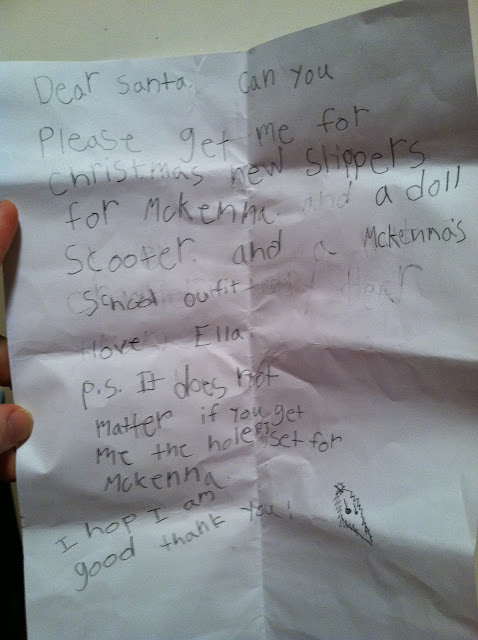 Dear Santa. Can you
Please get me for
Christmas new slippers
for Mckenna. and a doll
Scooter. and a Mckenna's
School outfit
love Ella
p.s. It does not
matter if you get
me the hole PJ set for
Mckenna.
I hop I am
good thank you!